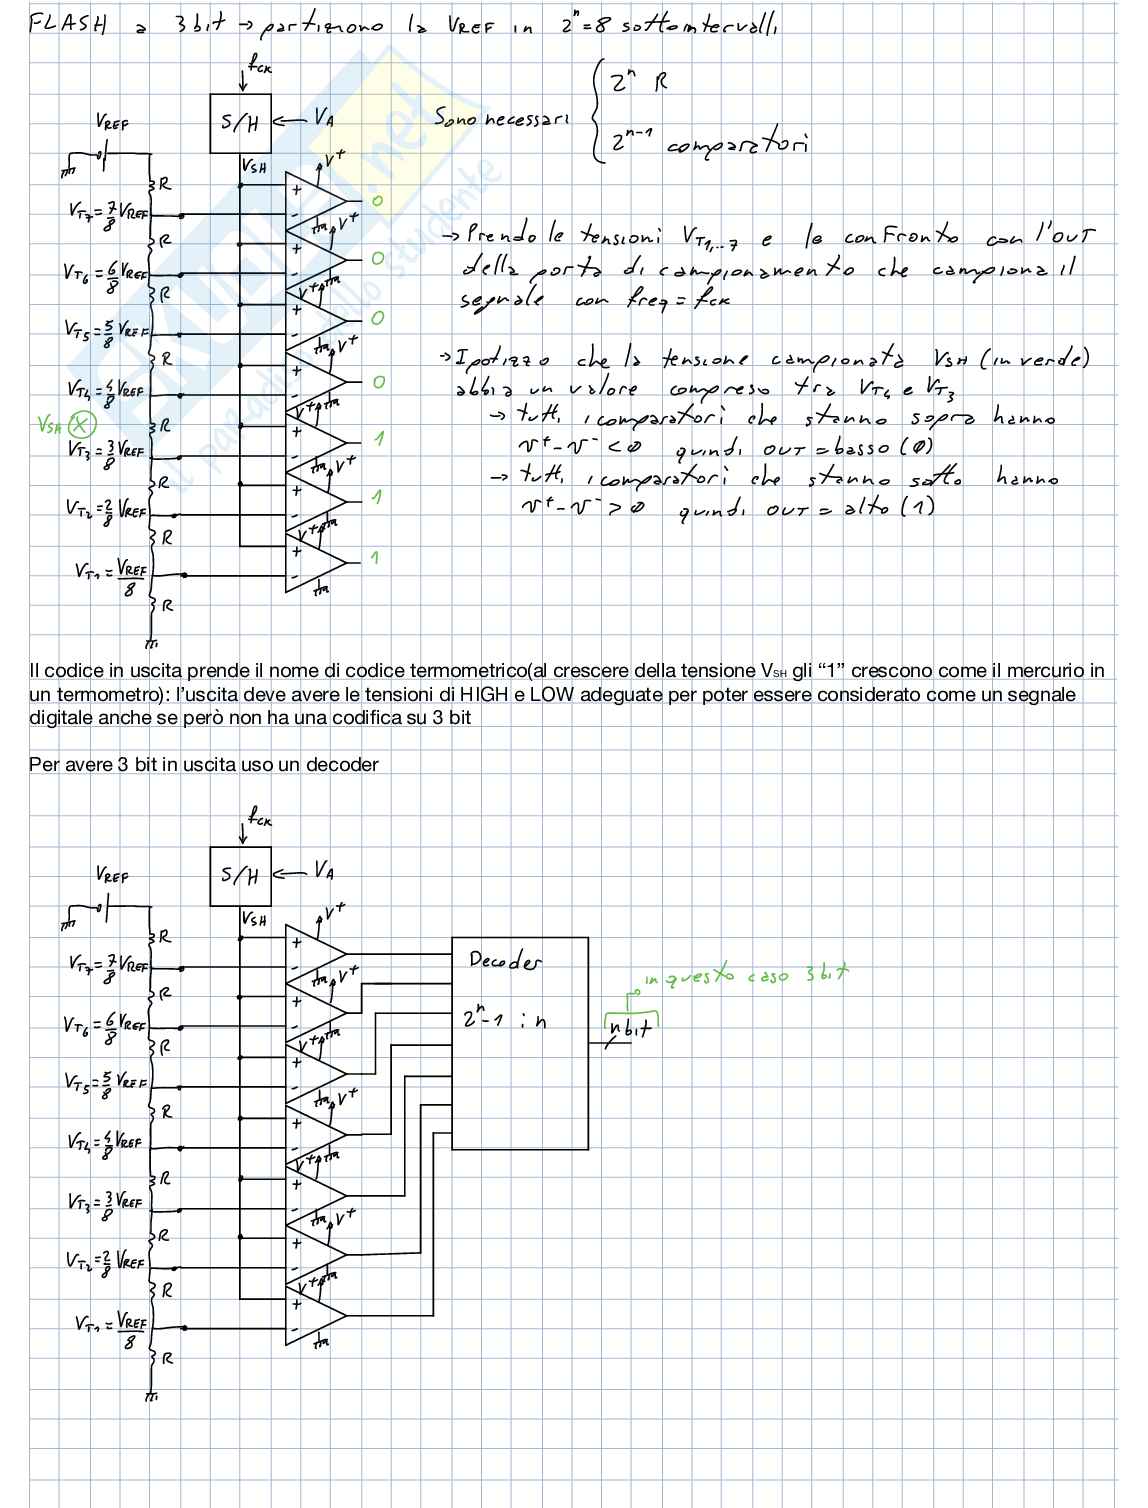 FLASH a 3 bit → partiziono la VREF in 2^n = 8 sottointervalli
fCK
S/H
VA
VREF
VSH
Sono necessari
2^n R
2^n-1 comparatori
R
VT7 = 7/8 VREF
+
-
V+
0
R
VT6 = 6/8 VREF
+
-
V+
0
R
VT5 = 5/8 VREF
+
-
V+
0
R
VT4 = 4/8 VREF
+
-
V+
0
VSH X
R
VT3 = 3/8 VREF
+
-
V+
1
R
VT2 = 2/8 VREF
+
-
V+
1
R
VT1 = VREF/8
+
-
V+
1
R
→ Prendo le tensioni VT1,..7 e le confronto con l'OUT
della porta di campionamento che campiona il
segnale con freq = fCK
→ Ipotizzo che la tensione campionata VSH (in verde)
abbia un valore compreso tra VT4 e VT3
→ tutti i comparatori che stanno sopra hanno
v+ - v- < 0 quindi OUT = basso (0)
→ tutti i comparatori che stanno sotto hanno
v+ - v- > 0 quindi OUT = alto (1)
Il codice in uscita prende il nome di codice termometrico(al crescere della tensione VSH gli “1” crescono come il mercurio in
un termometro): l’uscita deve avere le tensioni di HIGH e LOW adeguate per poter essere considerato come un segnale
digitale anche se però non ha una codifica su 3 bit
Per avere 3 bit in uscita uso un decoder
fCK
S/H
VA
VREF
VSH
R
VT7 = 7/8 VREF
+
-
V+
R
VT6 = 6/8 VREF
+
-
V+
R
VT5 = 5/8 VREF
+
-
V+
R
VT4 = 4/8 VREF
+
-
V+
R
VT3 = 3/8 VREF
+
-
V+
R
VT2 = 2/8 VREF
+
-
V+
R
VT1 = VREF/8
+
-
V+
R
Decoder
2^n-1 : n
in questo caso 3 bit
n bit